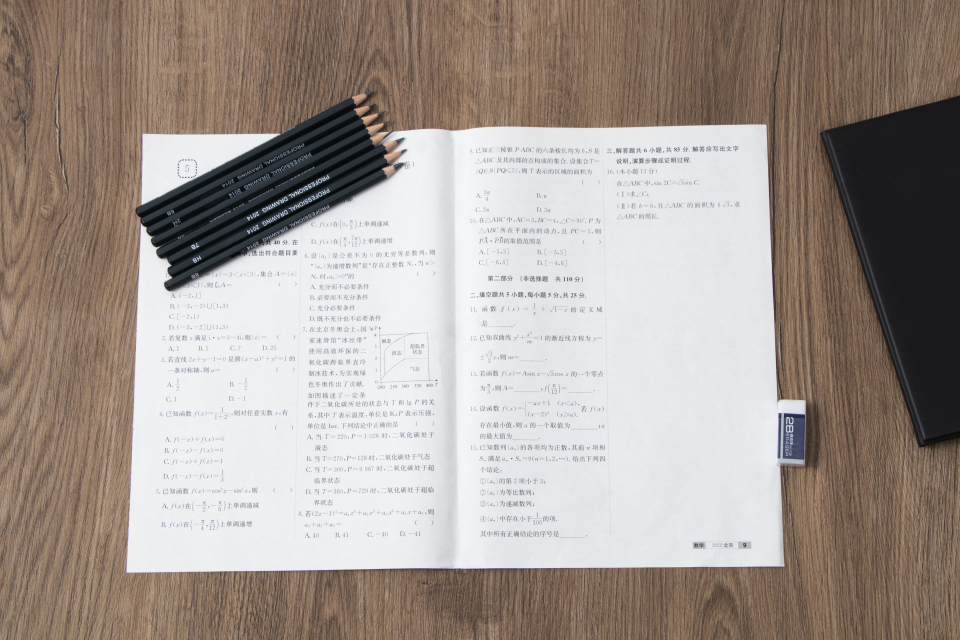 5
卷)
PROFESSIONAL DRAWING 2014
PROFESSIONAL DRAWING 2014
PROFESSIONAL DRAWING 2014
PROFESSIONAL DRAWING 2014
6B
2H
7B
HB
8B
共 40 分. 在
选出符合题目要
A. (-2,1]
B. (-3,-2)∪[1,3)
C. [-2,1)
D. (-3,-2]∪(1,3)
2. 若复数 z 满足 i·z=3-4i,则|z|= ( )
A. 1 B. 5 C. 7 D. 25
3. 若直线 2x+y-1=0 是圆(x-a)²+y²=1 的
一条对称轴,则 a= ( )
A. 1/2 B. -1/2
C. 1 D. -1
4. 已知函数 f(x)=1/(1+2ˣ),则对任意实数 x,有
( )
A. f(-x)+f(x)=0
B. f(-x)-f(x)=0
C. f(-x)+f(x)=1
D. f(-x)-f(x)=1/3
5. 已知函数 f(x)=cos²x-sin²x,则 ( )
A. f(x)在(-π/2,-π/6)上单调递减
B. f(x)在(-π/4,π/12)上单调递增
C. f(x)在(0,π/3)上单调递减
D. f(x)在(π/4,7π/12)上单调递增
6. 设{aₙ}是公差不为 0 的无穷等差数列,则
“{aₙ}为递增数列”是“存在正整数 N₀,当 n>
N₀ 时,aₙ>0”的 ( )
A. 充分而不必要条件
B. 必要而不充分条件
C. 充分必要条件
D. 既不充分也不必要条件
7. 在北京冬奥会上,国
家速滑馆“冰丝带”
使用高效环保的二
氧化碳跨临界直冷
制冰技术,为实现绿
色冬奥作出了贡献.
如图描述了一定条
lg P
固态
液态
超临界
状态
气态
200 250 300 350 400 T
件下二氧化碳所处的状态与 T 和 lg P 的关
系,其中 T 表示温度,单位是 K;P 表示压强,
单位是 bar.下列结论中正确的是 ( )
A. 当 T=220,P=1 026 时,二氧化碳处于
液态
B. 当 T=270,P=128 时,二氧化碳处于气态
C. 当 T=300,P=9 987 时,二氧化碳处于超
临界状态
D. 当 T=360,P=729 时,二氧化碳处于超临
界状态
8. 若(2x-1)⁴=a₄x⁴+a₃x³+a₂x²+a₁x+a₀,则
a₀+a₂+a₄= ( )
A. 40 B. 41 C. -40 D. -41
9. 已知正三棱锥 P-ABC 的六条棱长均为 6,S 是
△ABC 及其内部的点构成的集合.设集合 T=
{Q∈S|PQ≤5},则 T 表示的区域的面积为
( )
A. 3π/4 B. π
C. 2π D. 3π
10. 在△ABC 中,AC=3,BC=4,∠C=90°.P 为
△ABC 所在平面内的动点,且 PC=1,则
PA·PB的取值范围是 ( )
A. [-5,3] B. [-3,5]
C. [-6,4] D. [-4,6]
第二部分 (非选择题 共 110 分)
二、填空题共 5 小题,每小题 5 分,共 25 分.
11. 函数 f(x)=1/x+√(1-x)的定义域
是______.
12. 已知双曲线 y²+x²/m=1 的渐近线方程为 y=
±√3/3 x,则 m=______.
13. 若函数 f(x)=Asin x-√3cos x 的一个零点
为π/3,则 A=______,f(π/12)=______.
14. 设函数 f(x)={-ax+1 (x<a), (x-2)² (x≥a). 若 f(x)
存在最小值,则 a 的一个取值为______;a
的最大值为______.
15. 已知数列{aₙ}的各项均为正数,其前 n 项和
Sₙ 满足 aₙ·Sₙ=9(n=1,2,…).给出下列四
个结论:
①{aₙ}的第 2 项小于 3;
②{aₙ}为等比数列;
③{aₙ}为递减数列;
④{aₙ}中存在小于1/100的项.
其中所有正确结论的序号是______.
三、解答题共 6 小题,共 85 分. 解答应写出文字
说明,演算步骤或证明过程.
16. (本小题 13 分)
在△ABC 中,sin 2C=√3sin C.
(Ⅰ)求∠C;
(Ⅱ)若 b=6,且△ABC 的面积为 6√3,求
△ABC 的周长.
数学 2022 北京 9
2B